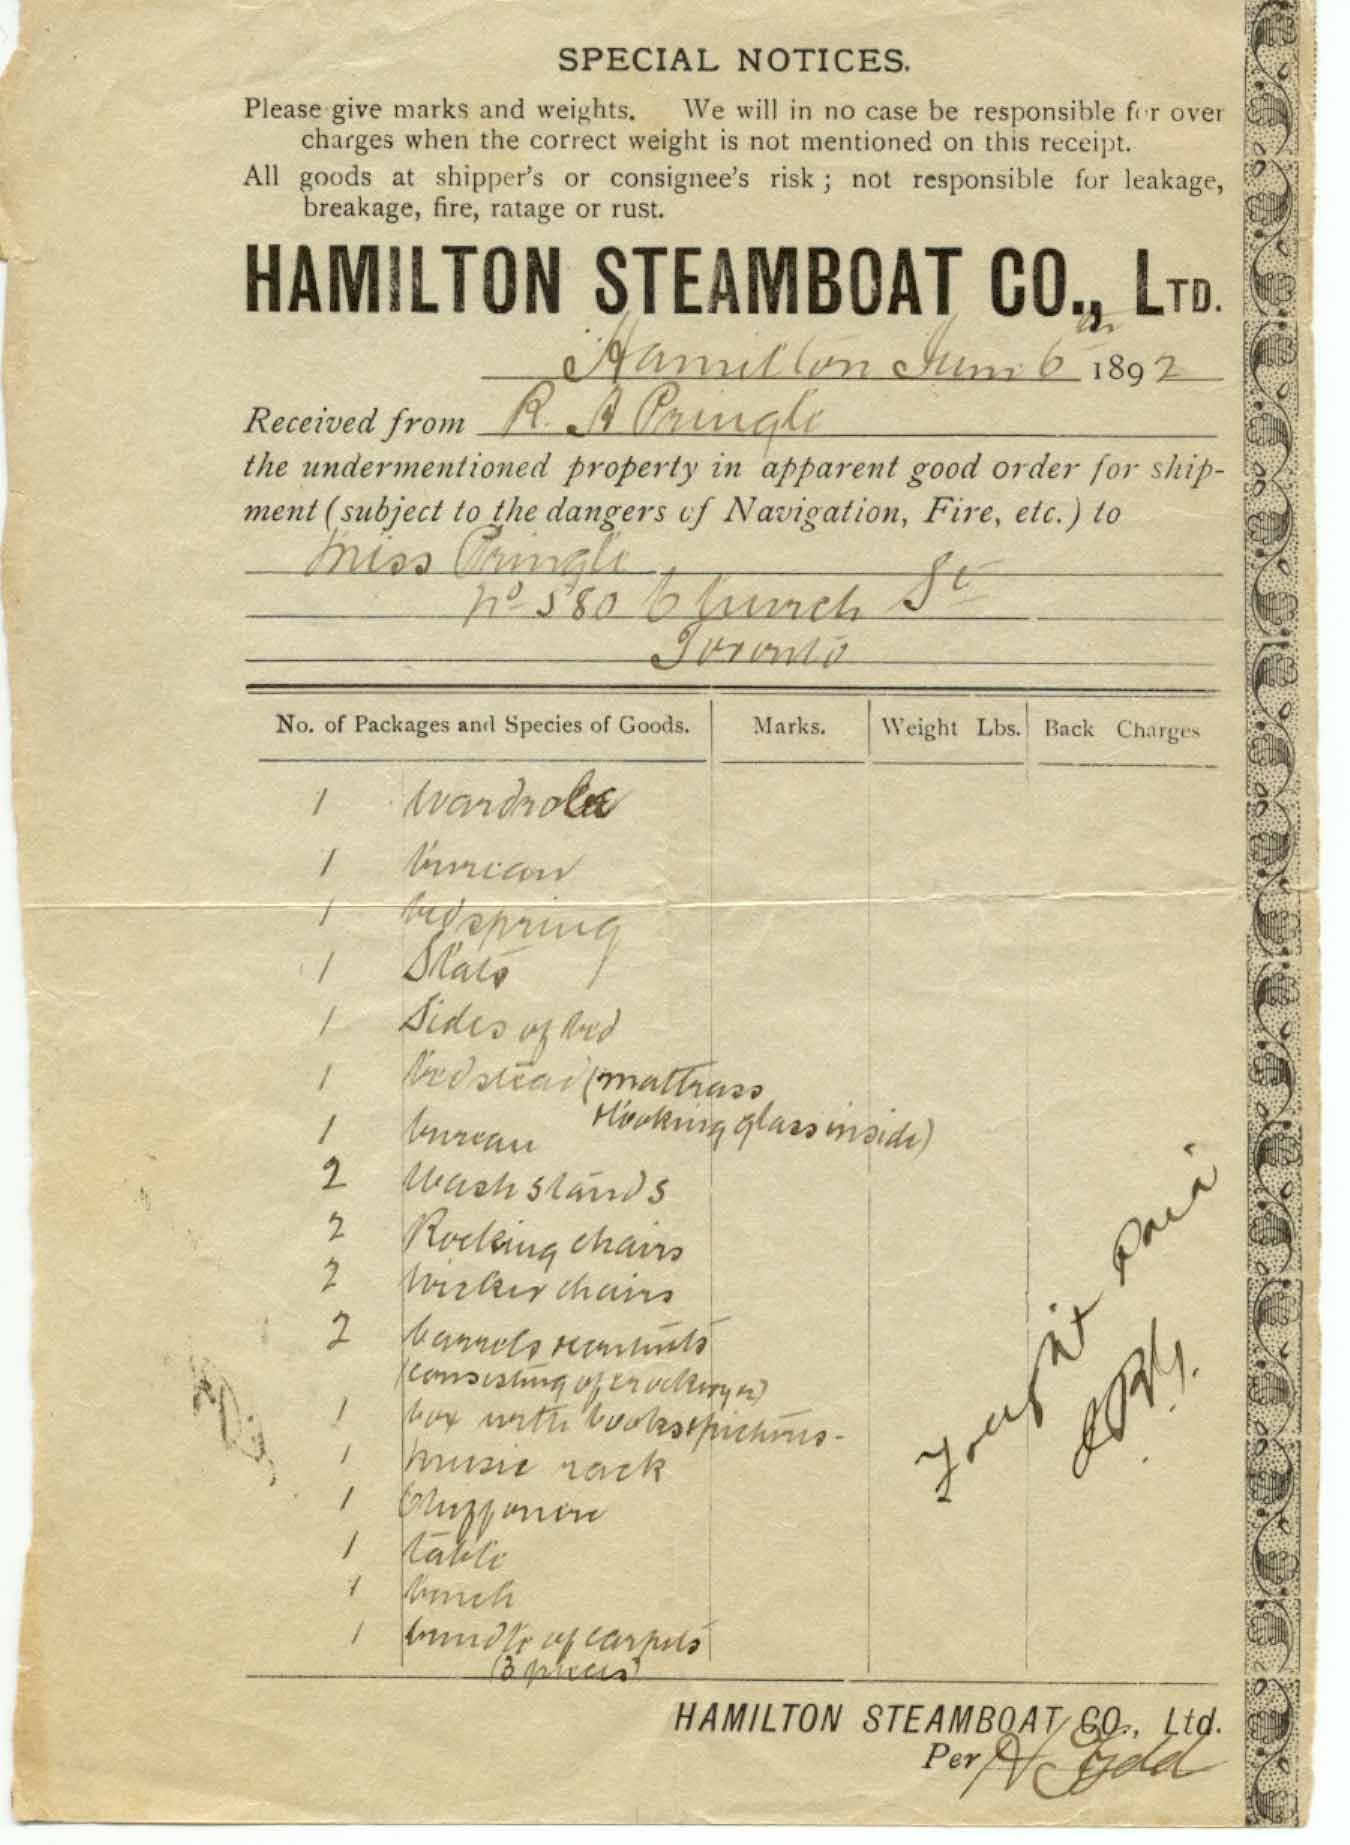 SPECIAL NOTICES.
Please give marks and weights. We will in no case be responsible for over
charges when the correct weight is not mentioned on this receipt.
All goods at shipper's or consignee's risk; not responsible for leakage,
breakage, fire, ratage or rust.
HAMILTON STEAMBOAT CO., LTD.
Hamilton June 6th 1892
Received from R. A Pringle
the undermentioned property in apparent good order for ship-
ment (subject to the dangers of Navigation, Fire, etc.) to
Miss Pringle
No 580 Church St
Toronto
No. of Packages and Species of Goods. Marks. Weight Lbs. Back Charges
1 wardrobe
1 bureau
1 bedspring
1 Slats
1 Sides of bed
1 bedstead (mattrass
& looking glass inside)
1 bureau
2 Wash stands
2 Rocking chairs
2 Wicker chairs
2 barrels & contents
(consisting of crockery)
1 box with books & pictures-
1 music rack
1 Chiffonier
1 table
1 bench
1 bundle of carpets
(3 pieces)
Freight Paid
HAMILTON STEAMBOAT CO., Ltd.
Per